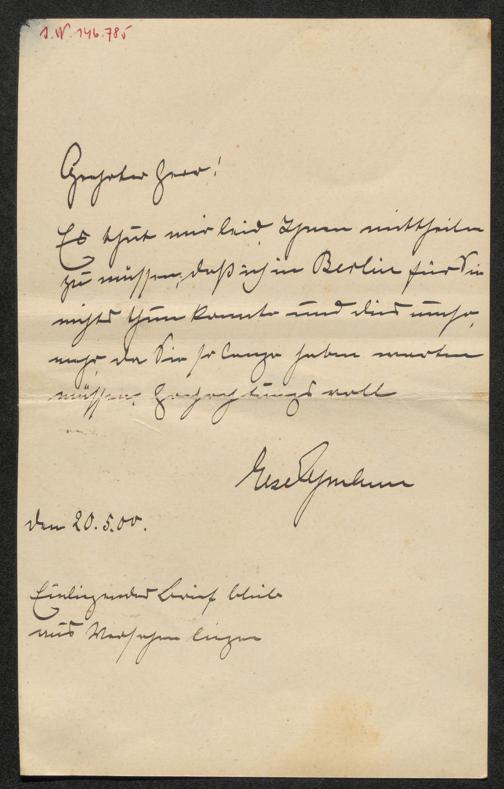 J.N. 146.785
Geehrter Herr!
Es thut mir leid Ihnen mittheilen
zu müssen, daß ich in Berlin für Sie
nichts thun konnte und dies umso
mehr, da Sie so lange haben warten
müssen. Hochachtungsvoll
den 20.5.00.
Einliegender Brief blieb
aus Versehen liegen